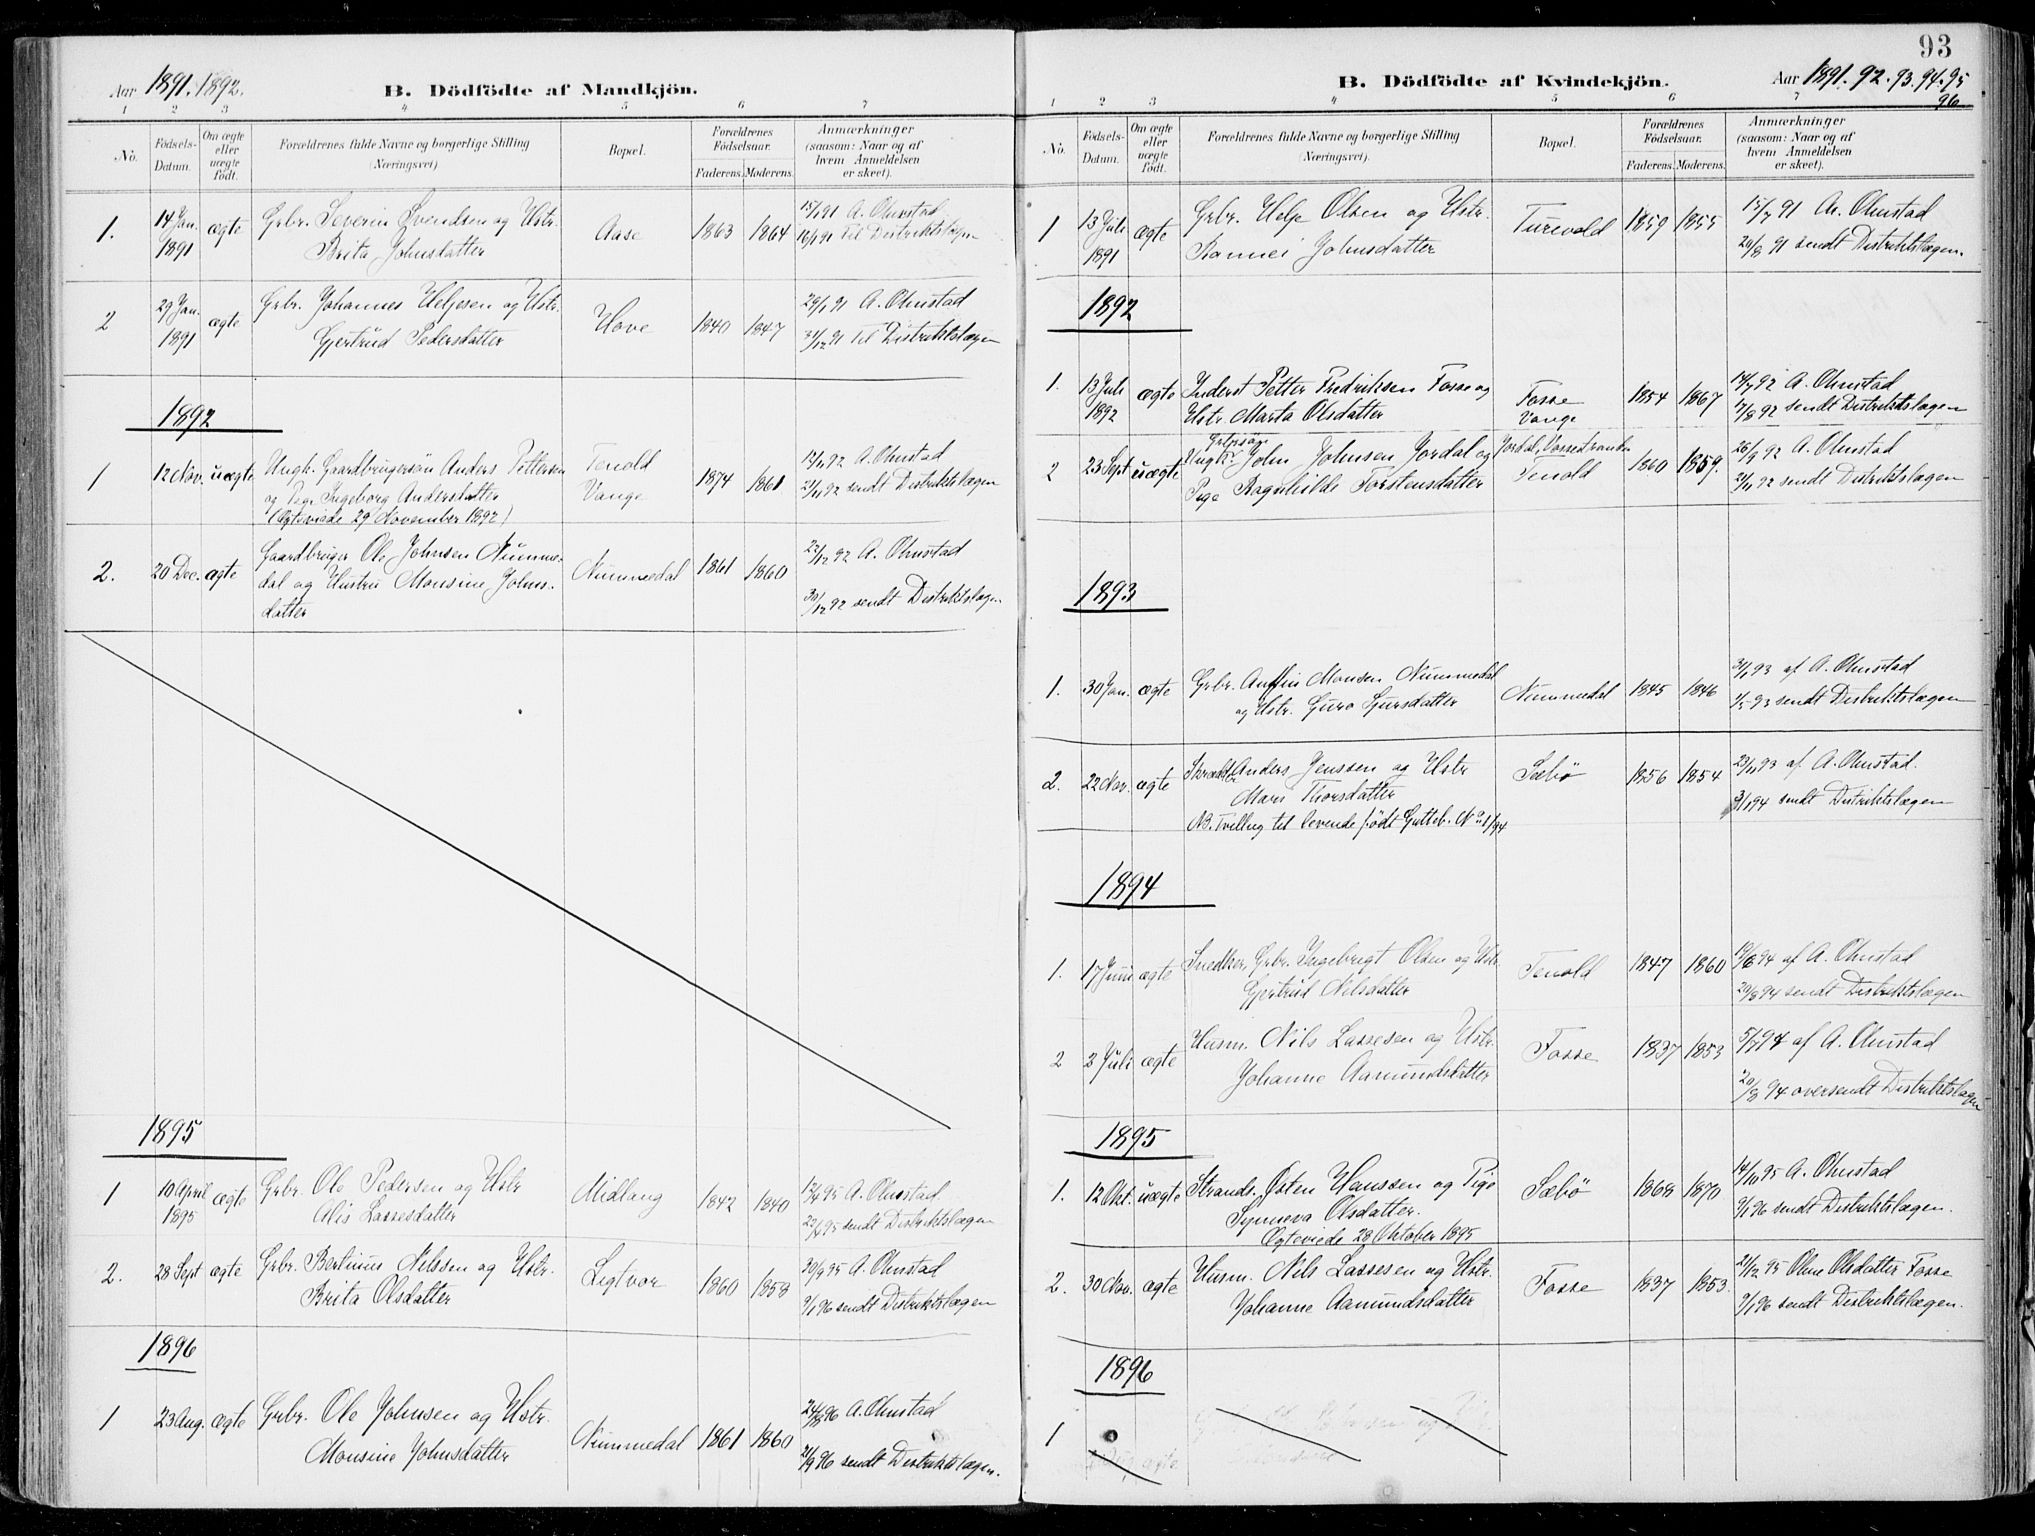 Aar 1891. 1892.
B. Dödfödte af Mandkjön.
1 2 3 4 5 6 7
No.
Födsels-Datum.
Om ægte eller uægte födt.
Forældrenes fulde Navne og borgerlige Stilling (Næringsvei)
Bopæl.
Forældrenes Födselsaar.
Faderens. Moderens.
Anmærkninger (saasom: Naar og af hvem Anmeldelsen er skeet).
1. 14 Jan. 1891 ægte
Grbr. Severin Svendsen og Hstr.
Brita Johnsdatter
Aase 1863 1864
15/1 91 A. Ohnstad
16/1 91 til Distriktslægen
2 29 Jan. 1891 ægte
Grbr. Johannes Helgesen og Hstr.
Gjertrud Pedersdatter
Hove 1840 1847
29/1 91 A. Ohnstad
31/12 91 til Distriktslægen
1892
1 12 Nov. uægte
Ungk. Gaardbrugersön Anders Pettersen
og Pige Ingeborg Andersdatter
(Ægteviede 29 November 1892)
Tenold
Vange
1874 1861
12/11 92 A. Ohnstad
21/11 92 sendt Distriktslægen
2. 20 Dec. ægte
Gaardbruger Ole Johnsen Numme-
dal og Hustru Monsine Johns-
datter
Nummedal 1861 1860
22/12 92 A. Ohnstad
30/12 92 sendt Distriktslægen
1895
1 10 April 1895 ægte
Grbr. Ole Pedersen og Hstr
Alis Lassesdatter
Midlang 1842 1840
12/4 95 A. Ohnstad.
22/4 95 sendt Distriktslægen
2. 28 Sept ægte
Grbr. Bertinus Nilssen og Hstr.
Brita Olsdatter
Ligtvor 1860 1858
30/9 95 A. Ohnstad
9/1 96 sendt Distriktslægen
1896
1 23 Aug. ægte
Grbr. Ole Johnsen og Hstr.
Monsine Johnsdatter
Nummedal 1861 1860
24/8 96 A. Ohnstad
21/9 96 sendt Distriktslægen.
93
B. Dödfödte af Kvindekjön.
Aar 1891. 92. 93. 94. 95
96
1 2 3 4 5 6 7
No.
Födsels-Datum.
Om ægte eller uægte födt.
Forældrenes fulde Navne og borgerlige Stilling (Næringsvei).
Bopæl.
Forældrenes Födselsaar.
Faderens. Moderens.
Anmærkninger (saasom: Naar og af hvem Anmeldelsen er skeet).
1 13 Juli 1891 ægte
Grbr. Helge Olsen og Hstr.
Rannei Johnsdatter
Turvold 1859 1855
15/7 91 A. Ohnstad
20/8 91 sendt Distriktslægen.
1892
1. 13 Juli 1892 ægte
Inderst Petter Fredriksen Fosse og
Hstr. Marta Olsdatter
Fosse
Vange
1854 1867
14/7 92 A. Ohnstad
17/8 92 sendt Distriktslægen
2 23 Sept uægte
Ungk. John Johnsen Jordal og
Pige Ragnhilde Torstensdatter
Jordal, Vossestranden
Tenold
1860 1859.
26/9 92 A. Ohnstad
21/11 92 sendt Distriktslægen
1893
1. 30 Jan. ægte
Grbr. Anfin Monsen Nummedal
og Hstr. Guro Sjursdatter
Nummedal 1845 1846
31/1 93 af A. Ohnstad
1/5 93 sendt Distriktslægen
2. 22 Nov. ægte
Skrædder Anders Jenssen og Hstr
Mari Thorsdatter
NB. Tvilling til levende födt Gutteb. No 1/94
Sæbø 1856 1854
23/11 93 af A. Ohnstad.
3/1 94 sendt Distriktslægen
1894
1. 17 Juni ægte
Snedker, Grbr. Ingebrigt Olsen og Hstr.
Gjertrud Nilsdatter
Tenold 1847 1860
19/6 94 af A. Ohnstad
20/8 94 sendt Distriktslægen
2 2 Juli ægte
Husm. Nils Lassesen og Hstr.
Johanne Aamundsdatter
Fosse 1837 1853
5/7 94 af A. Ohnstad
20/8 94 oversendt Distriktslægen
1895
1. 12 Okt. uægte
Strands. Østen Hanssen og Pige
Synneva Olsdatter.
Ægteviede 28 Oktober 1895
Sæbø 1868 1870
14/10 95 A. Ohnstad
9/1 96 sendt Distriktslægen.
2. 30 Nov. ægte
Husm. Nils Lassesen og Hstr.
Johanne Aamundsdatter
Fosse 1837 1853.
21/12 95 Ohne Olsdatter Fosse
9/1 96 sendt Distriktslægen.
1896
1